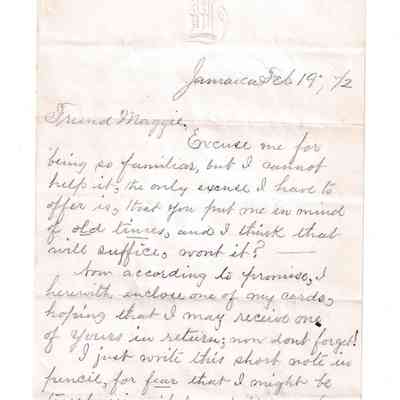 Jamaica Feb 19, /2
Friend Maggie,
Excuse me for
being so familiar, but I cannot
help it, the only excuse I have to
offer is, that you put me in mind
of old times, and I think that
will suffice, wont it?
Now according to promise, I
herewith enclose one of my cards,
hoping that I may receive one
of yours in return; now dont forget!
I just write this short note in
pencil, for fear that I might be